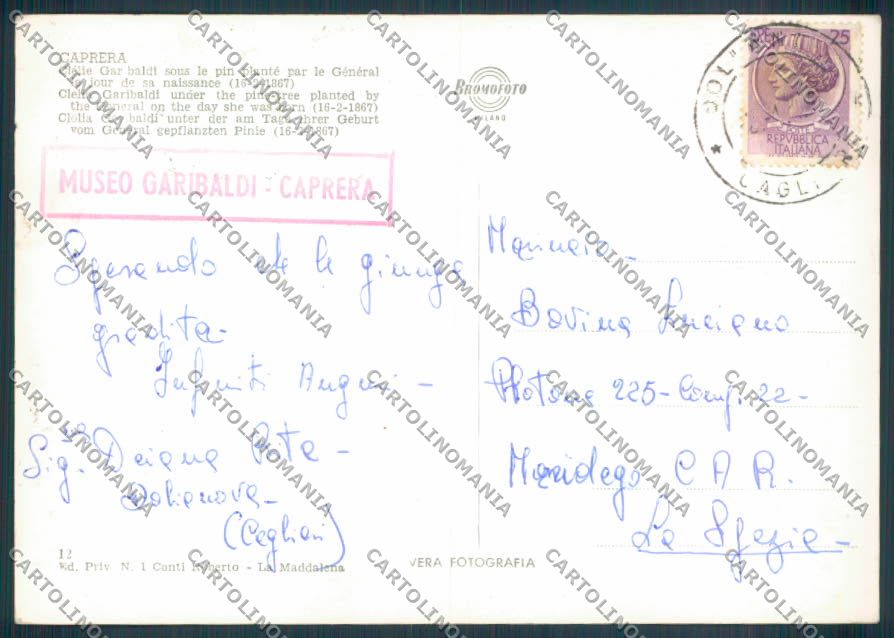 CAPRERA
Clélie Garibaldi sous le pin planté par le Général
le jour de sa naissance (16-2-1867)
Clelia Garibaldi under the pine-tree planted by
the General on the day she was born (16-2-1867)
Clolia Garibaldi unter der am Tag ihrer Geburt
vom General gepflanzten Pinie (16-2-1867)
MUSEO GARIBALDI - CAPRERA
Sperando che le giunga
gradita -
Infiniti Auguri -
Sig.na Deiana Rita -
Dolianova -
(Cagliari)
12
Ed. Priv. N. 1 Conti Roberto - La Maddalena
BROMOFOTO
MILANO
VERA FOTOGRAFIA
25
POSTE
REPVBBLICA
ITALIANA
CAGLI
Marinaio -
Bovina Luciano
Plotone 225 - Comp. 22 -
Maridepo C A R.
La Spezia -
CARTOLINOMANIA